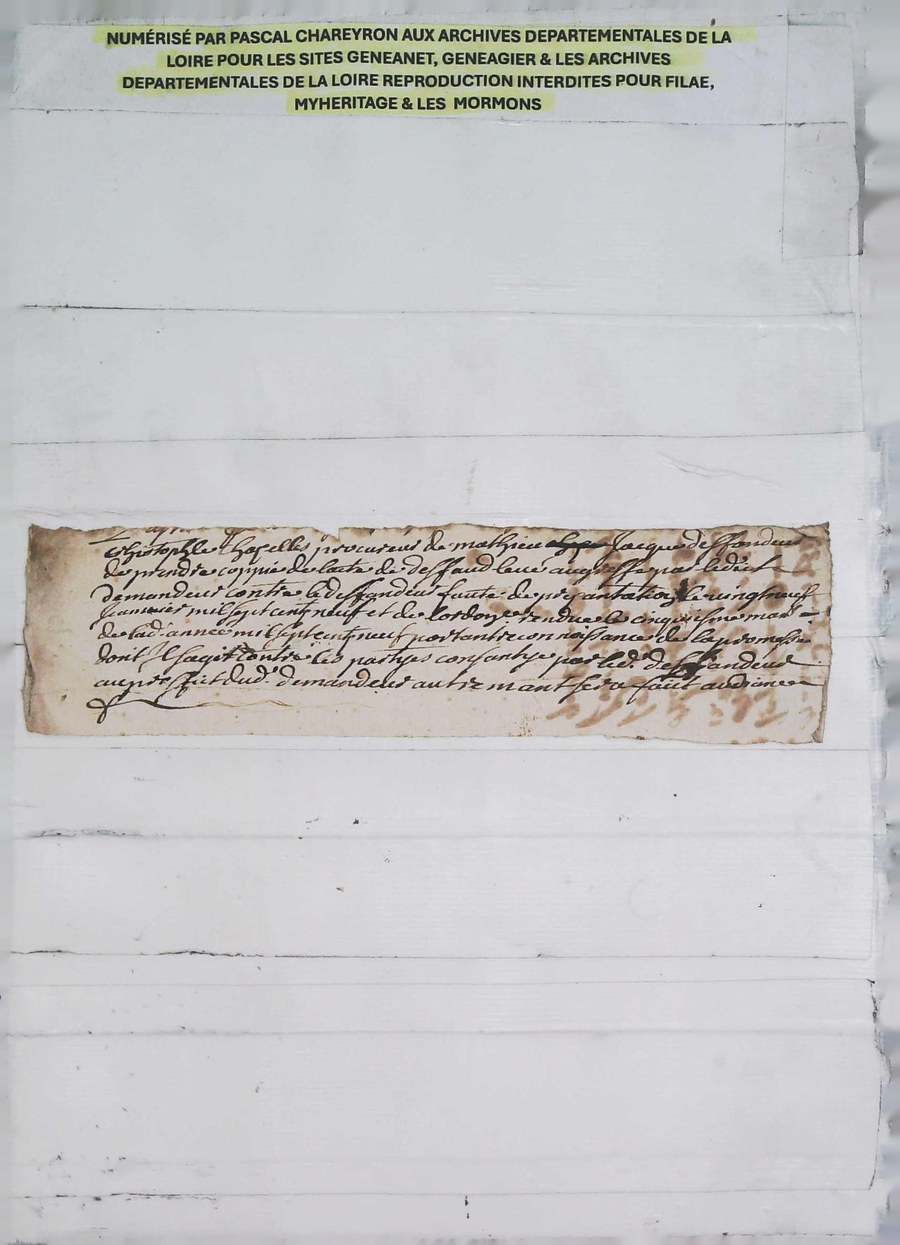 NUMÉRISÉ PAR PASCAL CHAREYRON AUX ARCHIVES DEPARTEMENTALES DE LA
LOIRE POUR LES SITES GENEANET, GENEAGIER & LES ARCHIVES
DEPARTEMENTALES DE LA LOIRE REPRODUCTION INTERDITES POUR FILAE,
MYHERITAGE & LES MORMONS
Christophle Chazelles procureur de mathieu Jacque deffandeur
de prendre coppie de lacte de deffaud levé au greffe par ledict
demandeur contre le deffandeur faute de presantation le vingt neuf
Janvier mil sept cent neuf et de lordonce rendue le cinquiesme mars
de lad. année mil sept cent neuf portant reconnoissance de la promesse
dont Il sagit contre les partyes consantye par led. deffandeur
au proffict dud. demandeur autremant sera faict audiance